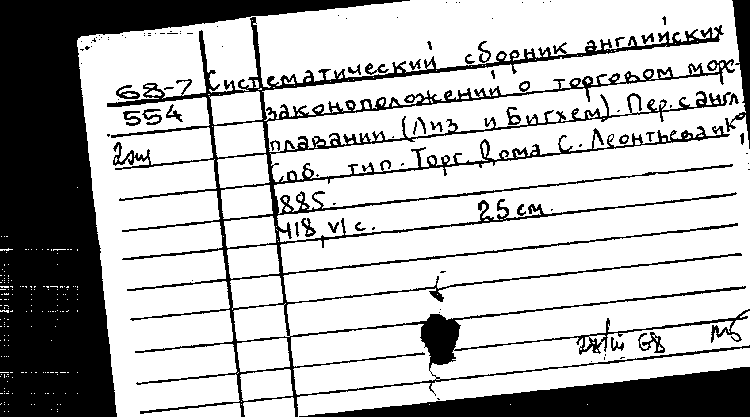 68-7 Систематический сборник английских
554 законоположений о торговом море-
2 экз плавании. (Лиз и Бигхем). Пер. с англ.
Спб., тип. Торг. Дома С. Леонтьева и Ко,
1885.
418, VI с. 25 см.
28/III 68